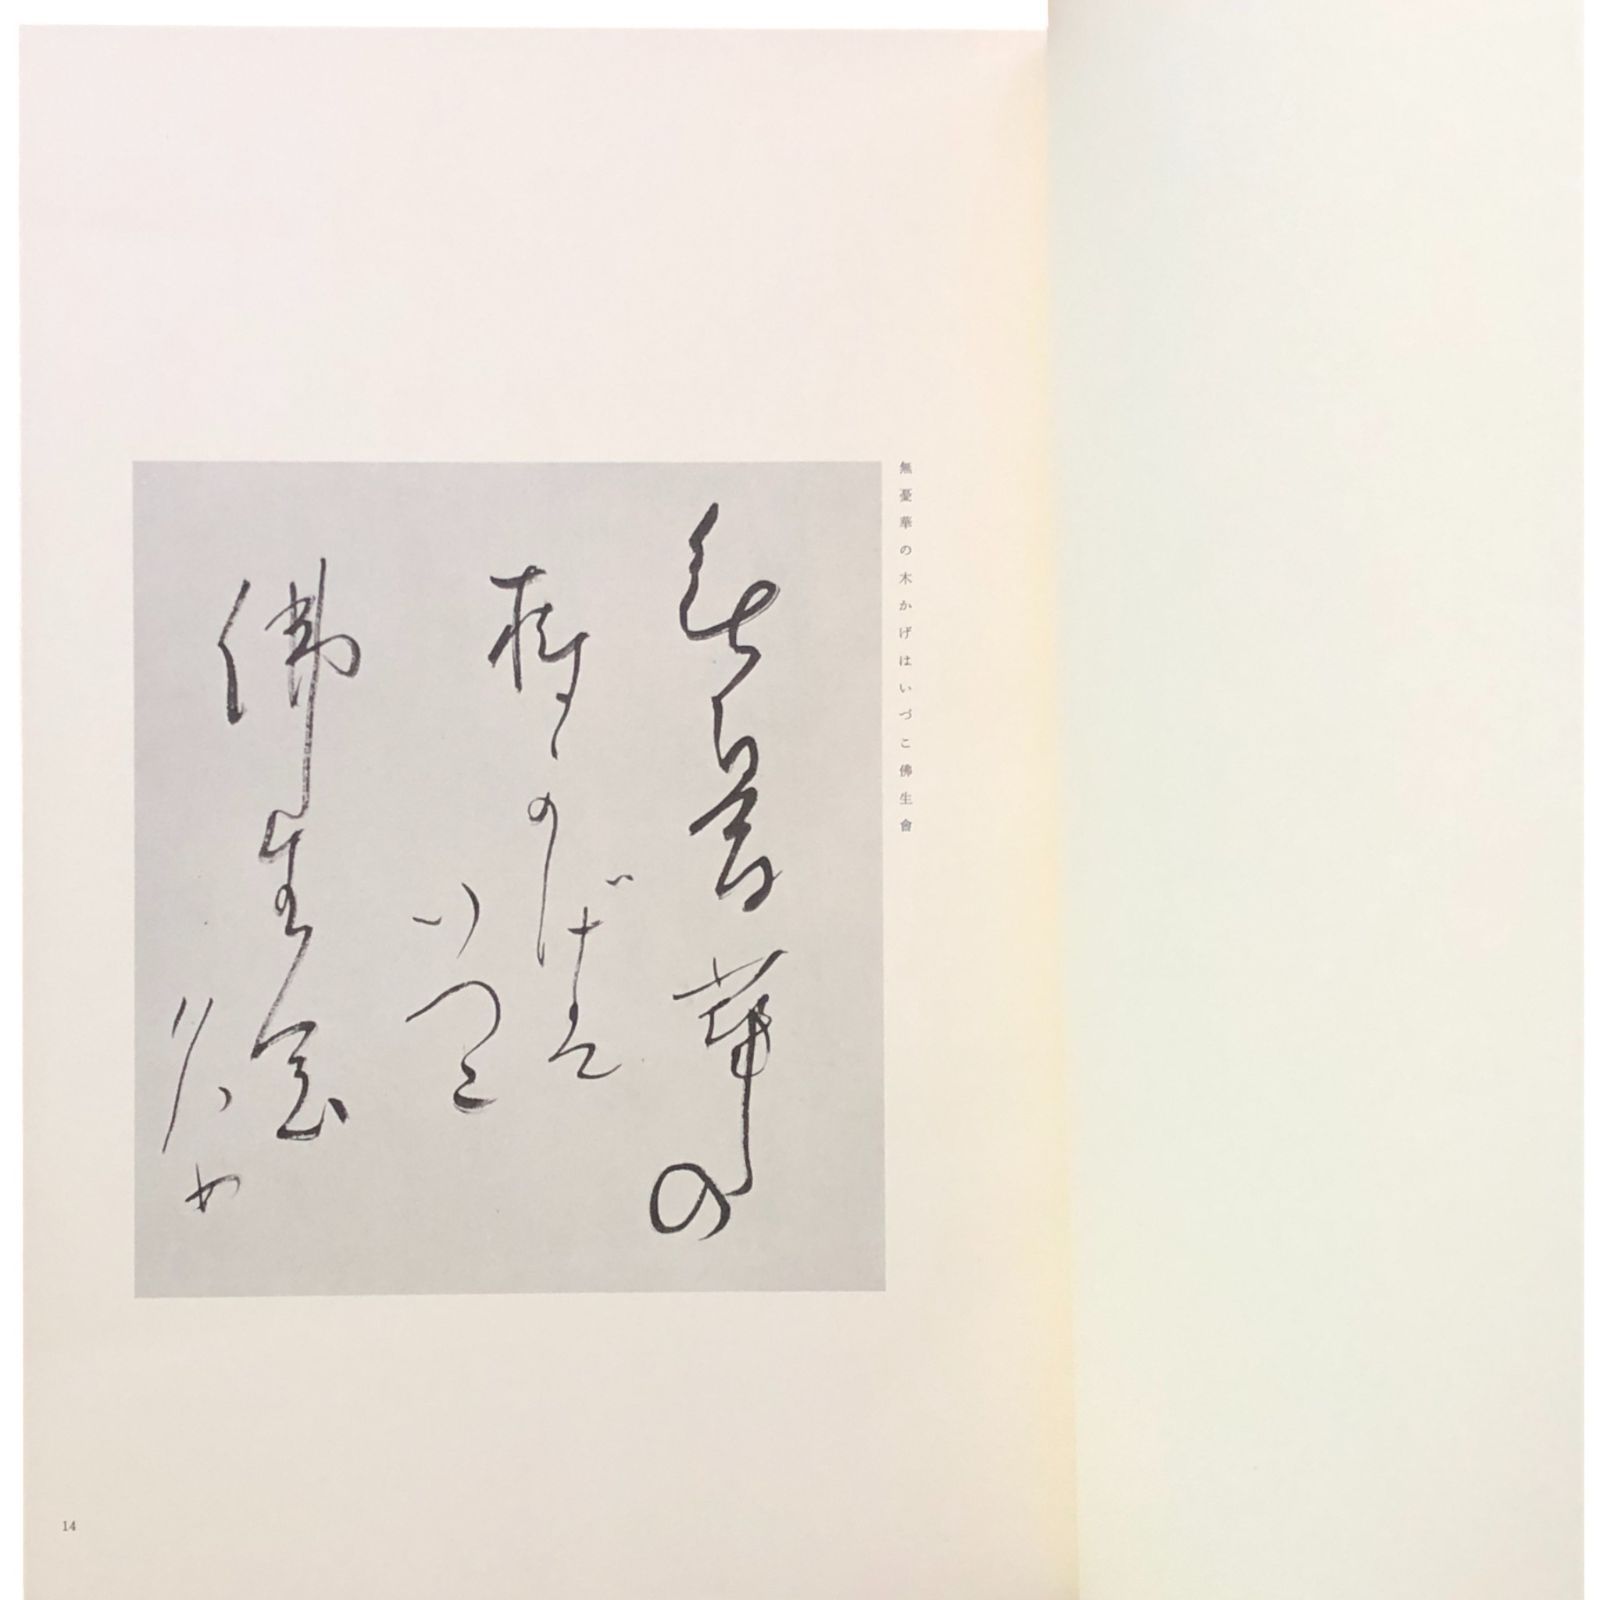 無憂華の木かげはいづこ佛生會
無憂華の
樹かげは
いつこ
佛生会
久女
14